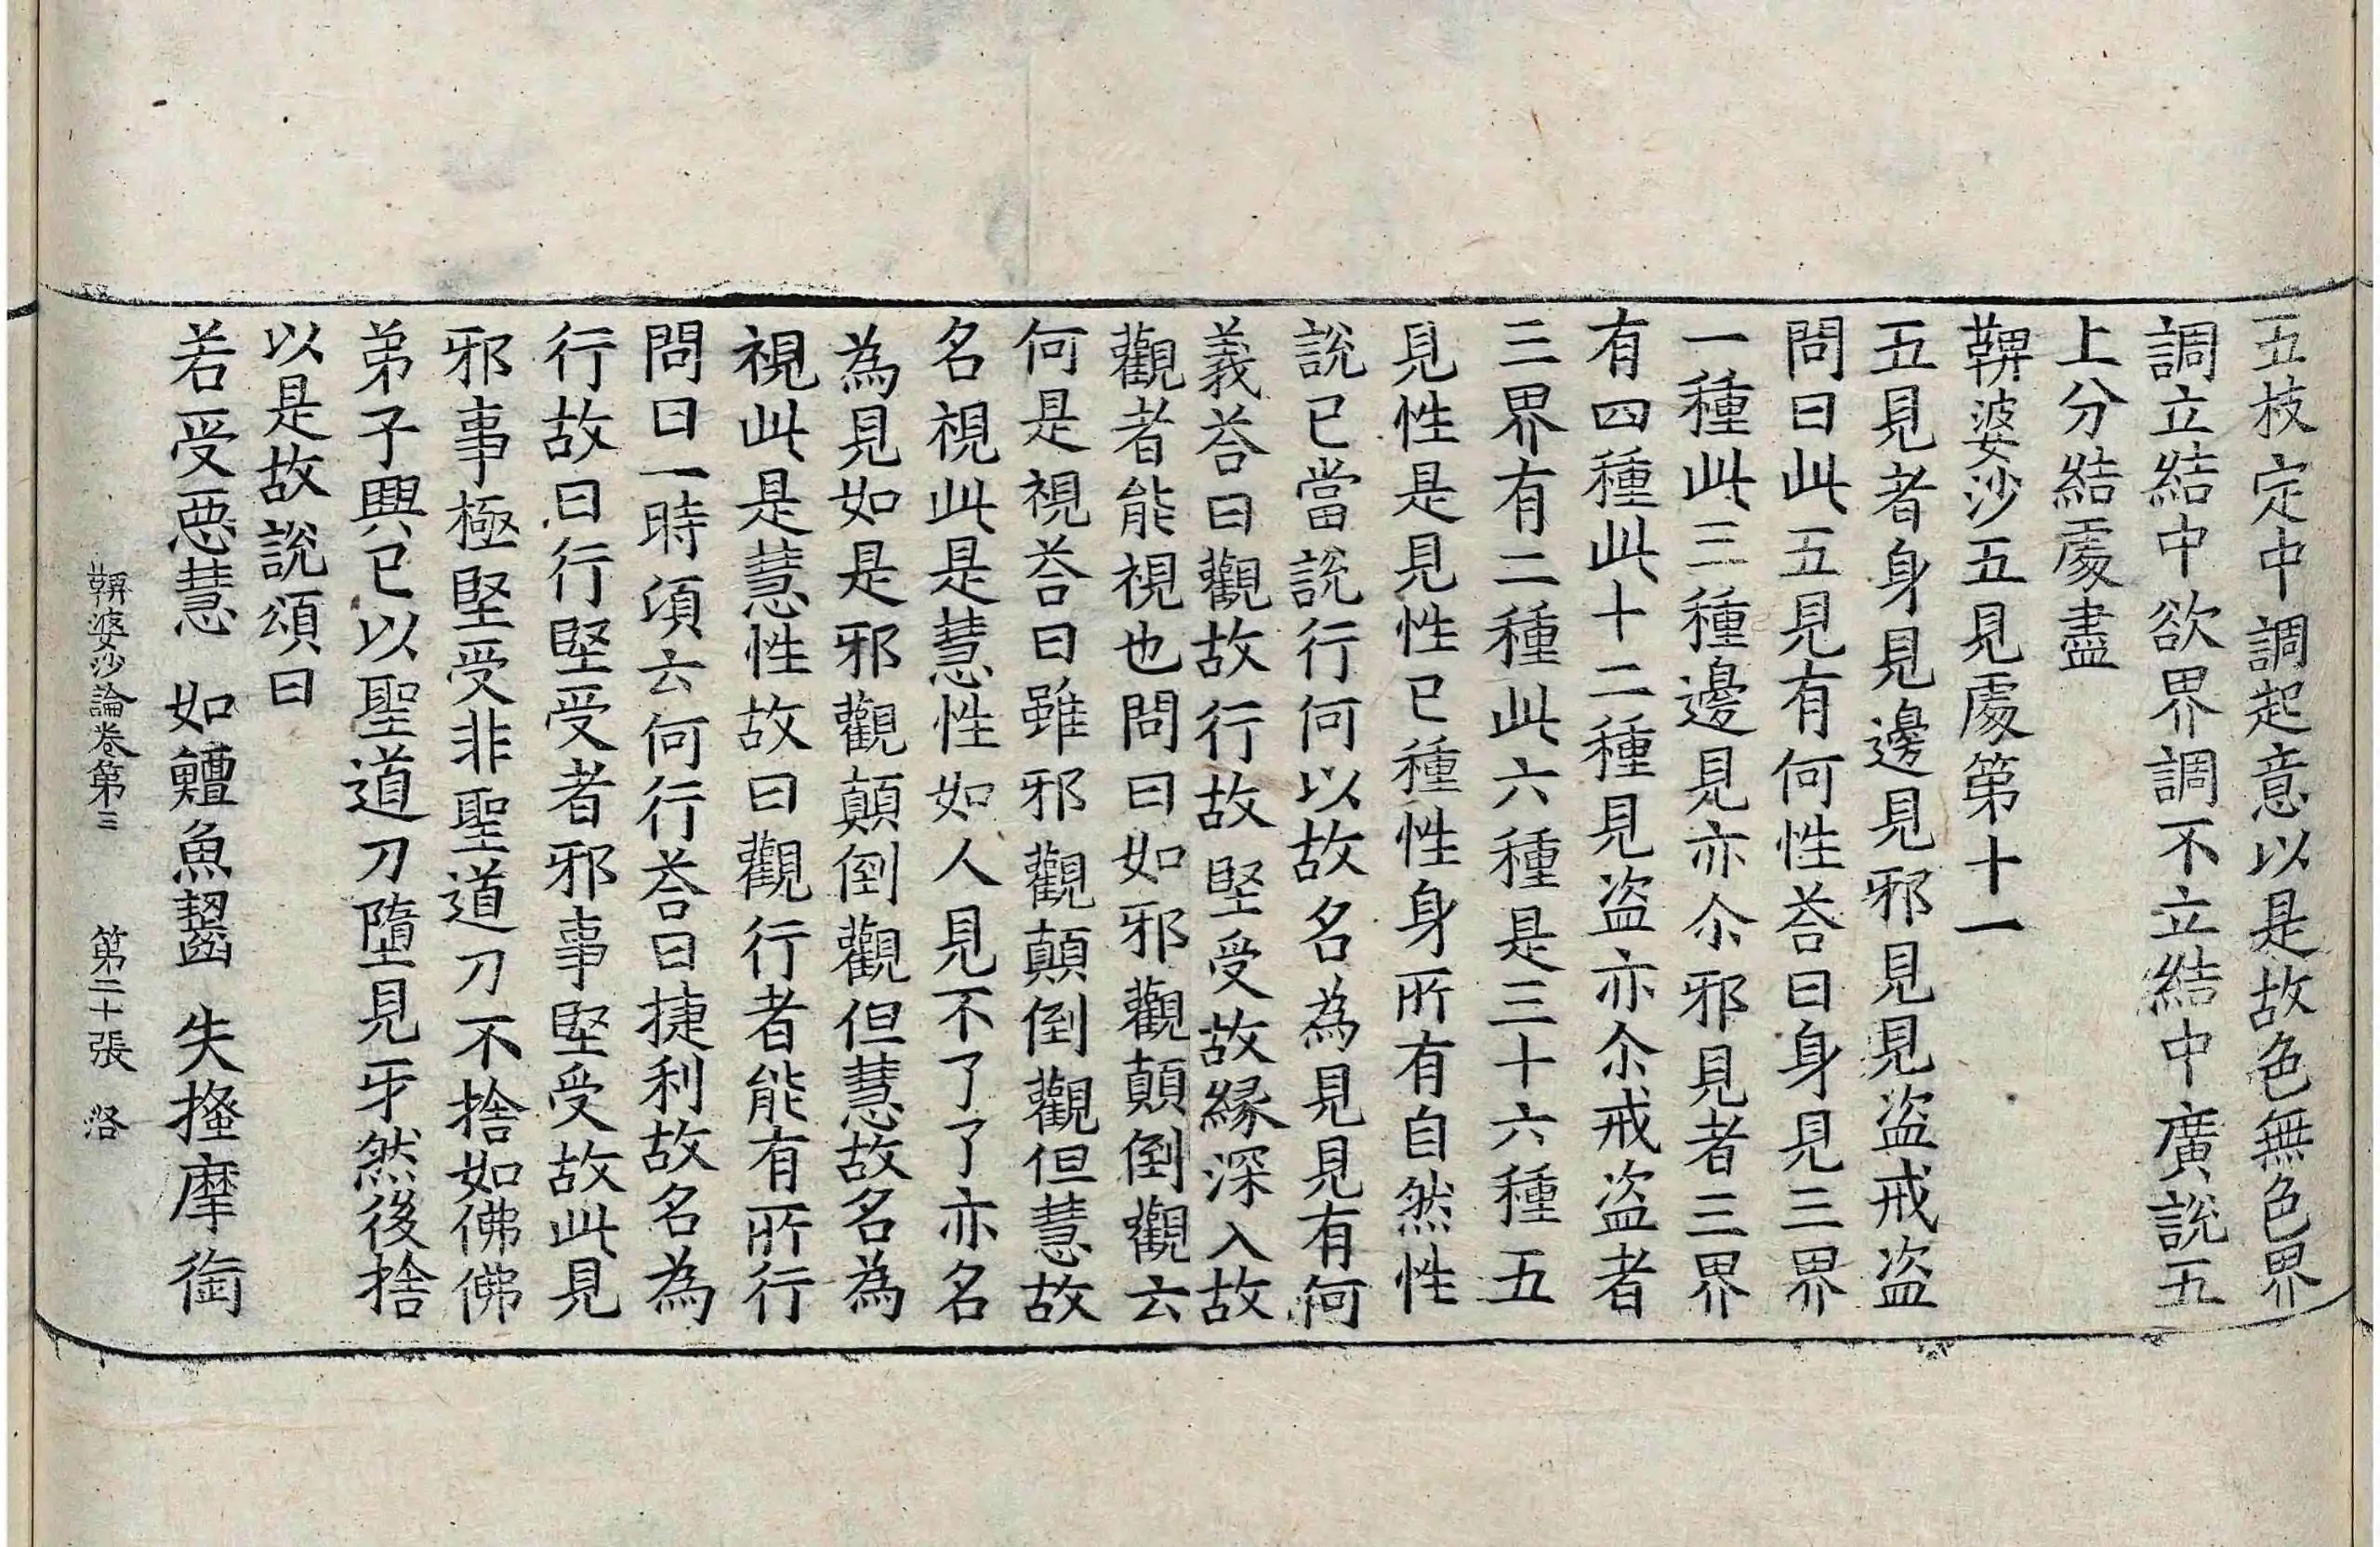 五枝定中調起意以是故色無色界
調立結中欲界調不立結中廣說五
上分結處盡
鞞婆沙五見處第十一
五見者身見邊見邪見見盜戒盜
問曰此五見有何性荅曰身見三界
一種此三種邊見亦尒邪見者三界
有四種此十二種見盜亦尒戒盜者
三界有二種此六種是三十六種五
見性是見性已種性身所有自然性
說已當說行何以故名為見見有何
義荅曰觀故行故堅受故緣深入故
觀者能視也問曰如邪觀顛倒觀云
何是視荅曰雖邪觀顛倒觀但慧故
名視此是慧性如人見不了了亦名
為見如是邪觀顛倒觀但慧故名為
視此是慧性故曰觀行者能有所行
問曰一時湏云何行荅曰捷利故名為
行故曰行堅受者邪事堅受故此見
邪事極堅受非聖道刀不捨如佛佛
弟子興已以聖道刀墮見牙然後捨
以是故說頌曰
若受惡慧　如鱣魚齧　失摓摩銜
鞞婆沙論卷第三　第二十張　洛